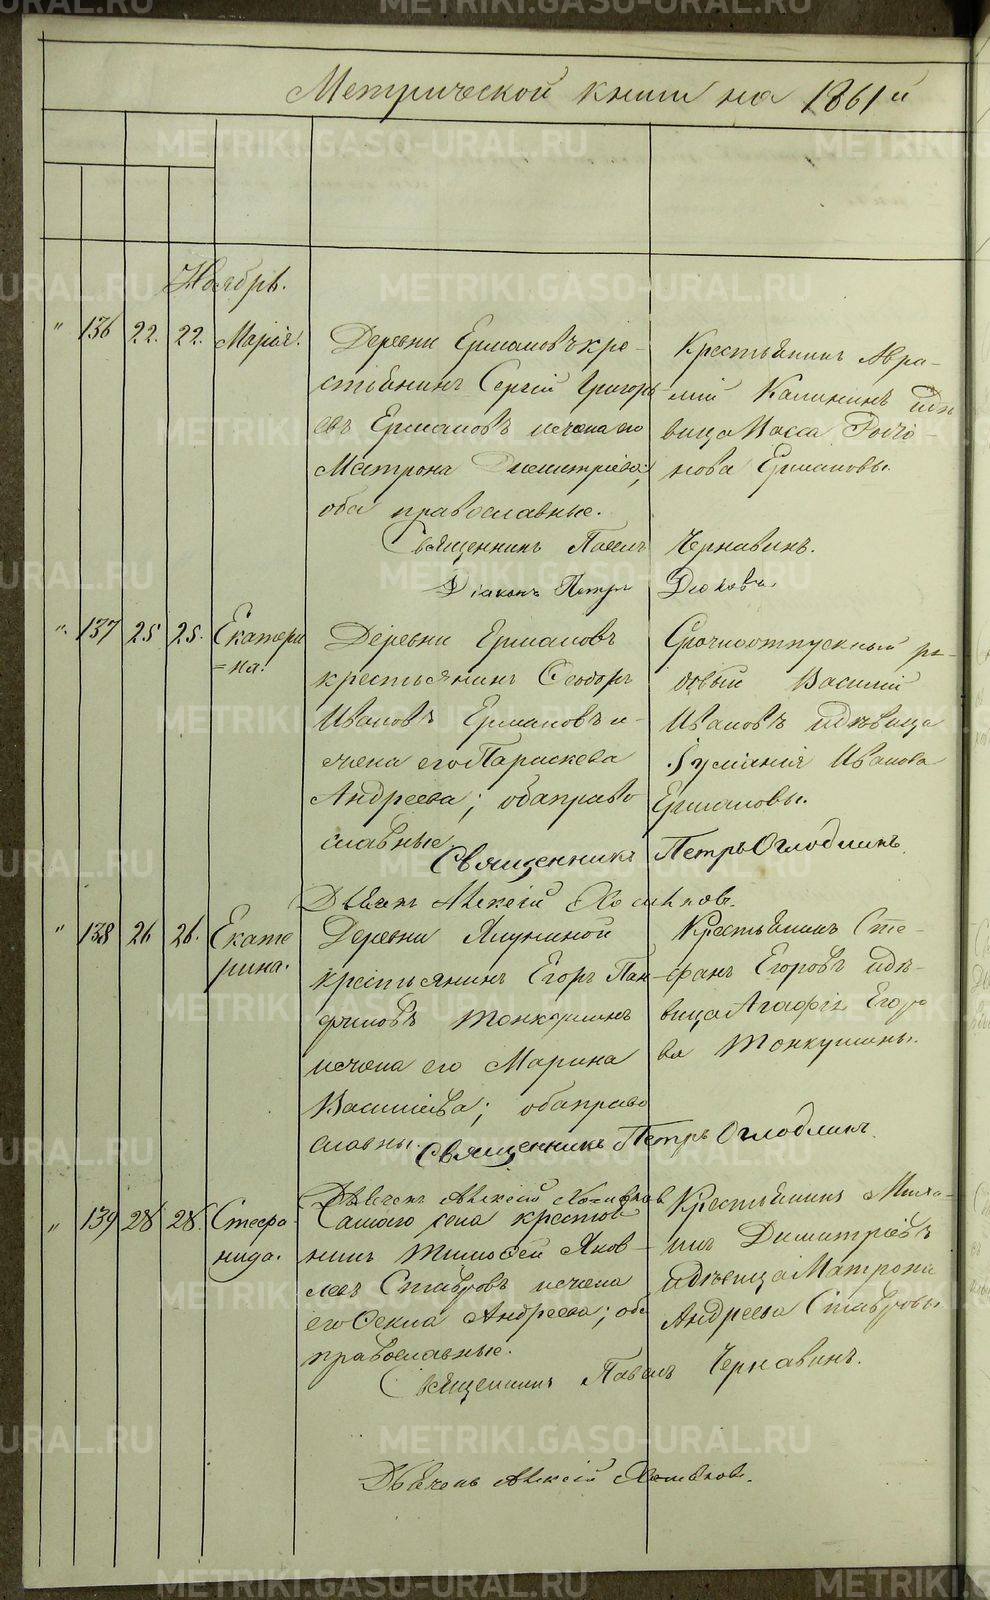 Метрической книги на 1861й
Ноябрь.
" 136 22. 22. Марія.
Деревни Ермаковъ кре-
стьянинъ Сергій Григорь
евъ Ермаковъ и жена его
Матрона Димитріева;
оба православные.
Крестьянинъ Авра-
мій Калининъ и дѣ
вица
нова Ермаковы.
Священникъ Павелъ Чернавинъ.
Діаконъ Петръ
" 137 25 25. Екатери
=на.
Деревни Ермаковъ
крестьянинъ Ѳеодоръ
Ивановъ Ермаковъ и
жена его Параскева
Андреева; оба право
славные
Срочноотпускный ря-
довый Василій
Ивановъ и дѣвица
Іуліанія Иванова
Ермаковы.
Священникъ Петръ Оглодлинъ.
Дьячекъ Алексій
" 138 26 26. Екате
рина.
Деревни
крестьянинъ Егоръ Пан-
филовъ Тонкушинъ
и жена его Марина
Васильева; оба право
славны.
Крестьянинъ Сте-
фанъ Егоровъ и дѣ-
вица Агафія Егоро
ва Тонкушины.
Священникъ Петръ Оглодлинъ.
Дьячекъ Алексій
" 139 28 28. Стефа
нида.
Самого села крестья
нинъ Тимофей Яков-
левъ Ставровъ и жена
его Ѳекла Андреева; оба
православные.
Крестьянинъ Миха-
илъ Димитріевъ
и дѣвица Матрона
Андреева Ставровы
Священникъ Павелъ Чернавинъ.
Дьячекъ Алексій
METRIKI.GASO-URAL.RU